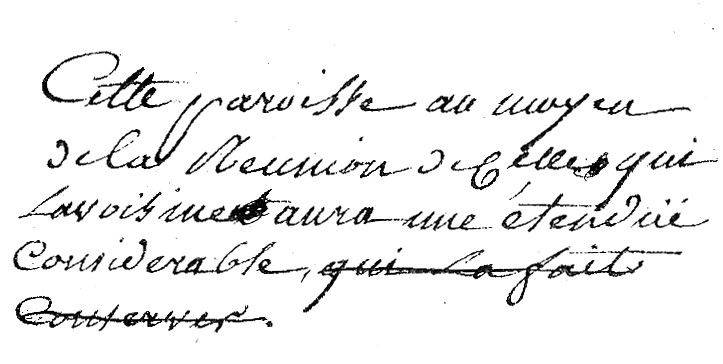 Cette paroisse au moyen
de la Reunion de Celles qui
Lavoisinent aura une étenduë
Considerable, qui La fait
Conserver.